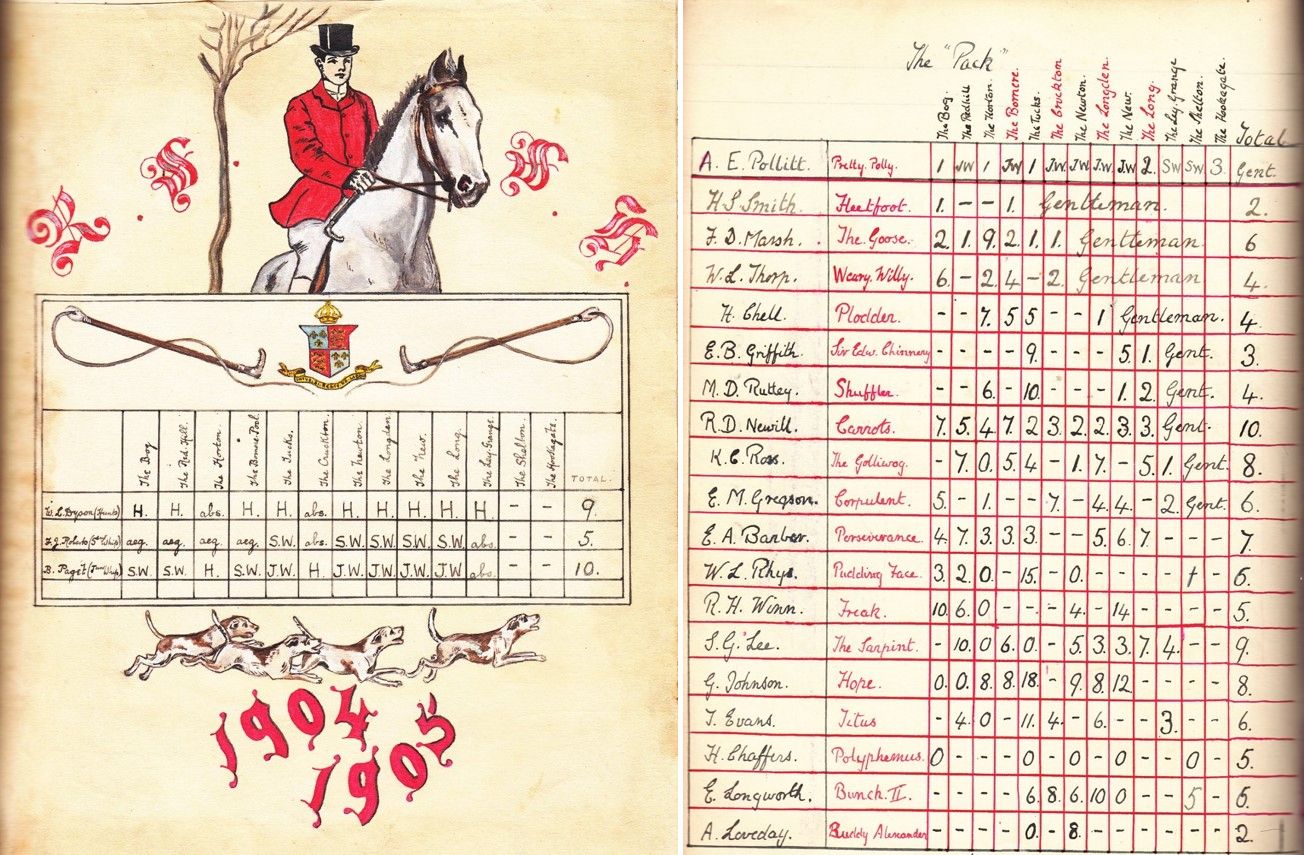 R. S. S. H.
The Bog
The Red Hill.
The Horton.
The Bomere Pool.
The Tucks.
The Cruckton.
The Newton.
The Longden
The New.
The Long.
The Ley Grange.
The Shelton.
The Hookagate.
TOTAL.
W. L. Dyson (Hunts) H. H. abs. H. H. abs. H. H. H. H. H. - - 9.
F. J. Roberts (Sen Whip) aeg. aeg. aeg. aeg. S.W. abs. S.W. S.W. S.W. S.W. abs. - - 5.
B. Paget (Junr Whip) S.W. S.W. H. S.W. J.W. H. J.W. J.W. J.W. J.W abs. - - 10.
1904
1905
The "Pack"
The Bog.
The Redhill
The Horton.
The Bomere.
The Tucks.
The Cruckton
The Newton.
The Longden.
The New.
The Long.
The Ley Grange
The Shelton.
The Hookagate.
Total
A. E. Pollitt. Pretty Polly. 1 JW 1 JW 1 JW. JW. JW. JW 2. SW SW. 3. Gent.
H. S. Smith. Fleetfoot. 1. - - 1. Gentleman. 2.
F. D. Marsh. The Goose. 2. 1. 9. 2. 1. 1. Gentleman 6
W. L. Thorp. Weary Willy. 6. - 2. 4 - 2. Gentleman 4.
H. Chell. Plodder. - - 7. 5 5 - - 1 Gentleman. 4.
E. B. Griffith. Sir Edw. Chinnery - - - - 9. - - - 5. 1. Gent. 3.
M. D. Rutley. Shuffler. - - 6. - 10. - - - 1. 2. Gent. 4.
R. D. Newill. Carrots. 7. 5. 4. 7. 2 3. 2. 2. 3. 3. Gent. 10.
K. C. Ross. The Golliwog. - 7. 0. 5. 4 - 1. 7. - 5. 1. Gent. 8.
E. M. Gregson. Corpulent. 5. - 1. - - 7. - 4. 4. - 2. Gent. 6.
E. A. Barber. Perseverance. 4. 7. 3. 3. 3. - - 5. 6. 7. - - - 7.
W. L. Rhys. Pudding Face. 3. 2. 0. - 15. - 0. - - - - † - 6.
R. H. Winn. Freak. 10. 6. 0 - - - 4. - 14 - - - - 5.
S. G. Lee. The Sarpint. - 10. 0 6. 0. - 5. 3. 3. 7. 4. - - 9.
G. Johnson. Hope. 0. 0. 8. 8. 18. - 9. 8. 12. - - - - 8.
T. Evans. Titus - 4. 0 - 11. 4. - 6. - - 3. - - 6.
H. Chaffers. Polyphemus. 0 - - - 0 - 0 - 0 - - 0 - 5.
E. Longworth. Bunch. II. - - - - 6. 8. 6. 10 0 - - 5 - 6.
A. Loveday. Buddy Alexander - - - - 0. - 8. - - - - - - 2.